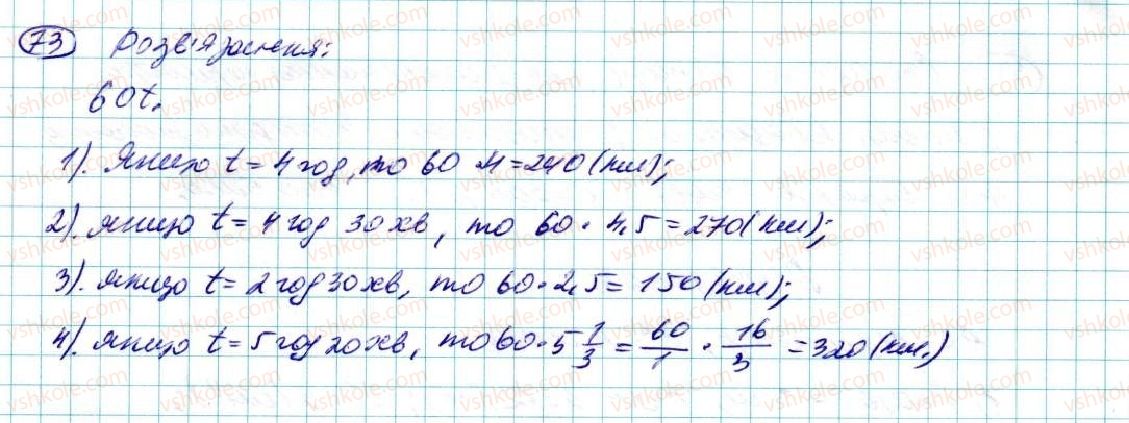 73 Розв'язання:
60t.
1). Якщо t = 4 год, то 60 · 4 = 240 (км);
2). якщо t = 4 год 30 хв, то 60 · 4,5 = 270 (км);
3). якщо t = 2 год 30 хв, то 60 · 2,5 = 150 (км);
4). якщо t = 5 год 20 хв, то 60 · 5 1/3 = 60/1 · 16/3 = 320 (км.)
vshkole.com